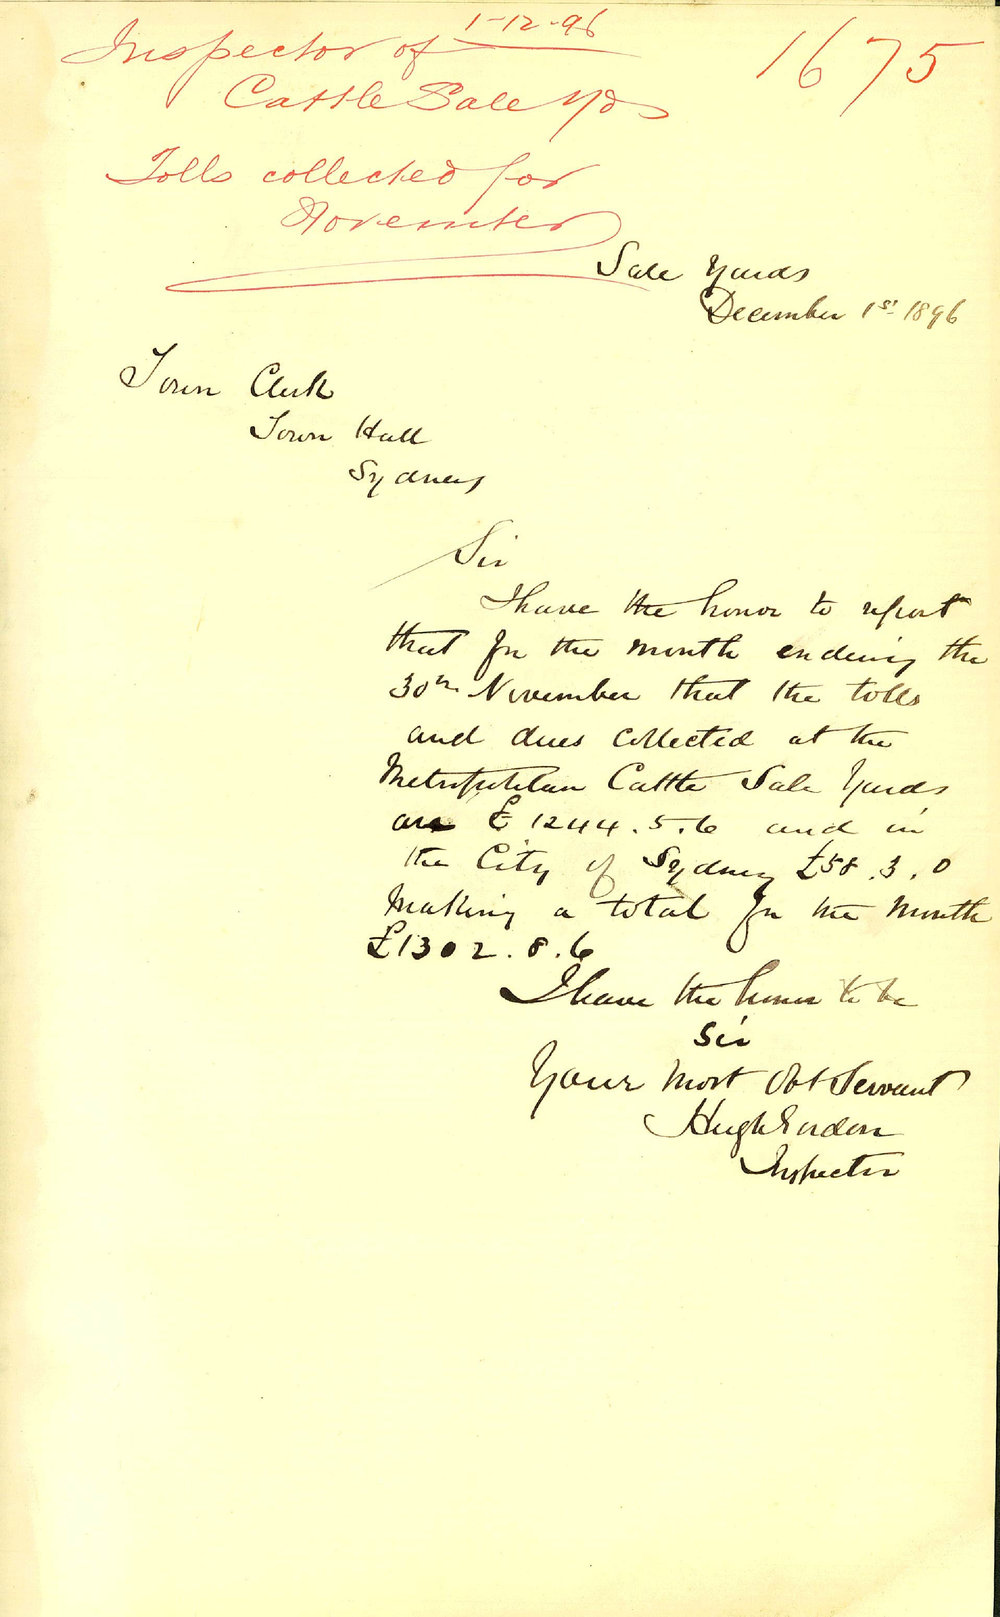 1-12-96
Inspector of
Cattle Sale Yds
1675
Tolls collected for
November
Sale Yards
December 1st 1896
Town Clerk
Town Hall
Sydney
Sir
I have the honor to report
that for the month ending the
30th November that the tolls
and dues collected at the
Metropolitan Cattle Sale Yards
are £1244.5.6 and in
the City of Sydney £58.3.0
Making a total for the month
£1302.8.6
I have the honor to be
Sir
Your most Obt Servant
Hugh Gordon
Inspector